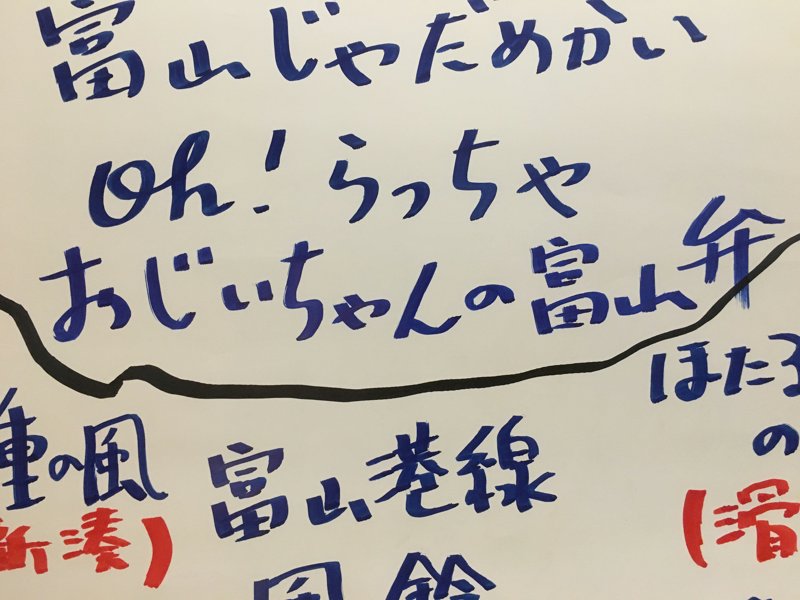 富山じゃだめかい
Oh!らっちゃ
おじいちゃんの富山弁
ほたる
の風
の
富山港線
新湊)
(滑
風鈴